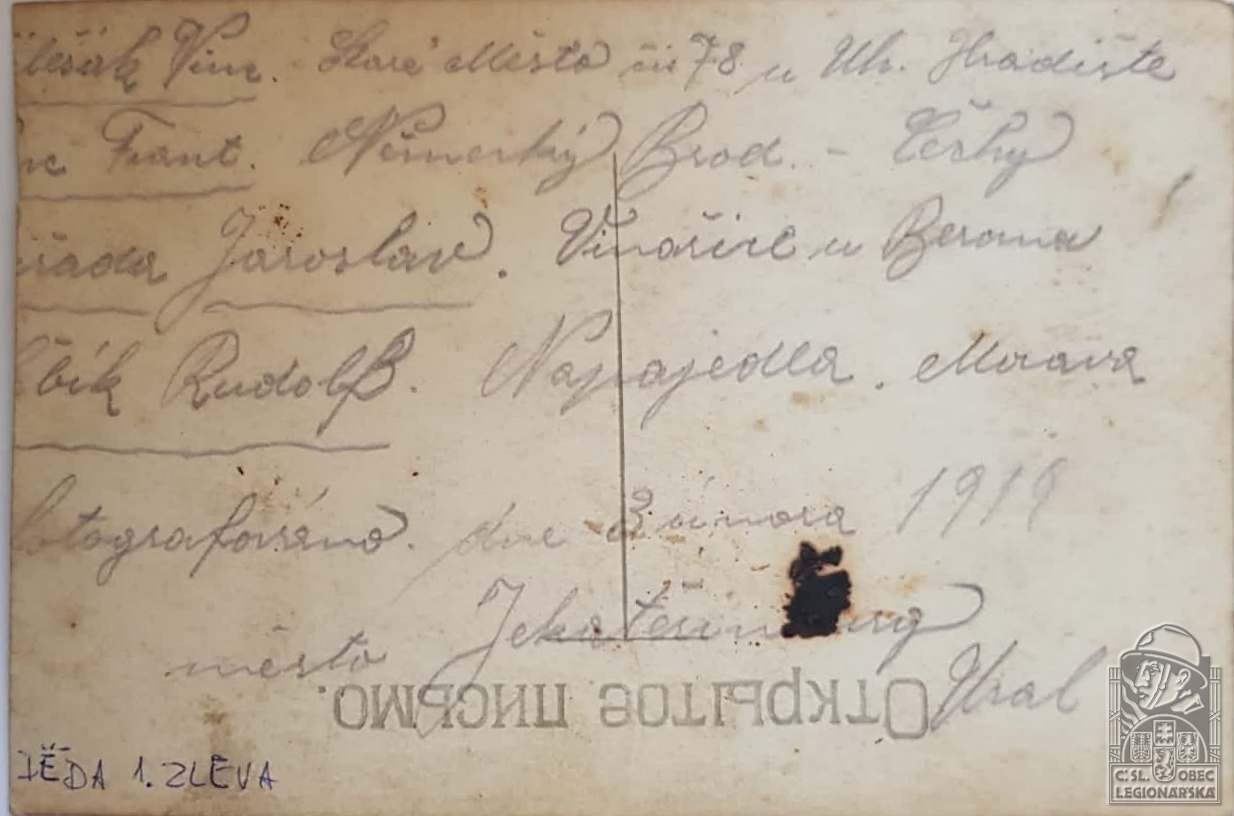 Vinc. Staré Město čís 78 u Uh. Hradiště
Frant. Německý Brod. - Čechy
Jaroslav. Vinařice u Berouna
Rudolf. Napajedla. Morava
fotografováno. dne 3 února 1919
město Jekatěrinburg
Ural
Открытое письмо.
DĚDA 1. ZLEVA
Č.SL. OBEC
LEGIONÁŘSKÁ